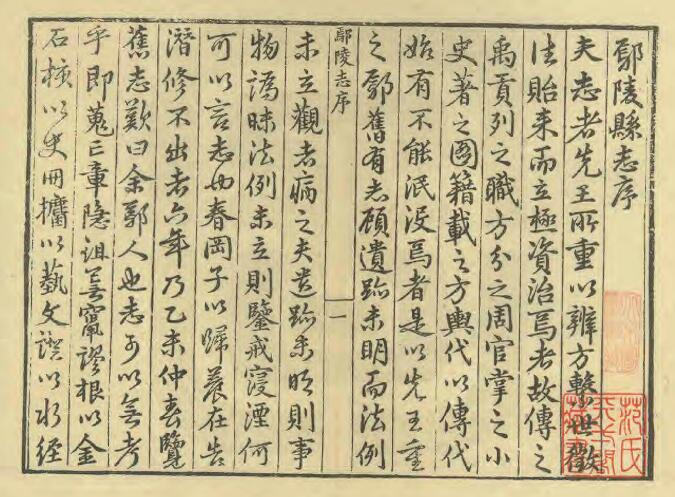 鄢陵縣志序
夫志者先王所重以辨方繫世徵
往貽来而立極資治焉者故傳之
禹貢列之職方分之周官掌之小
史著之圖籍載之方輿代以傳代
始有不能泯没焉者是以先王重
之鄢舊有志顧遺跡未明而法例
鄢陵志序
一
未立觀者病之夫遺跡未明則事
物譌昧法例未立則鑒戒寖湮何
可以言志也春岡子以歸養在告
潛修不出者六年乃乙未仲春覽
舊志歎曰余鄢人也志可以無考
乎即蒐章隐謬根以金
石核以史冊以藝文以水經
范氏天一閣藏書